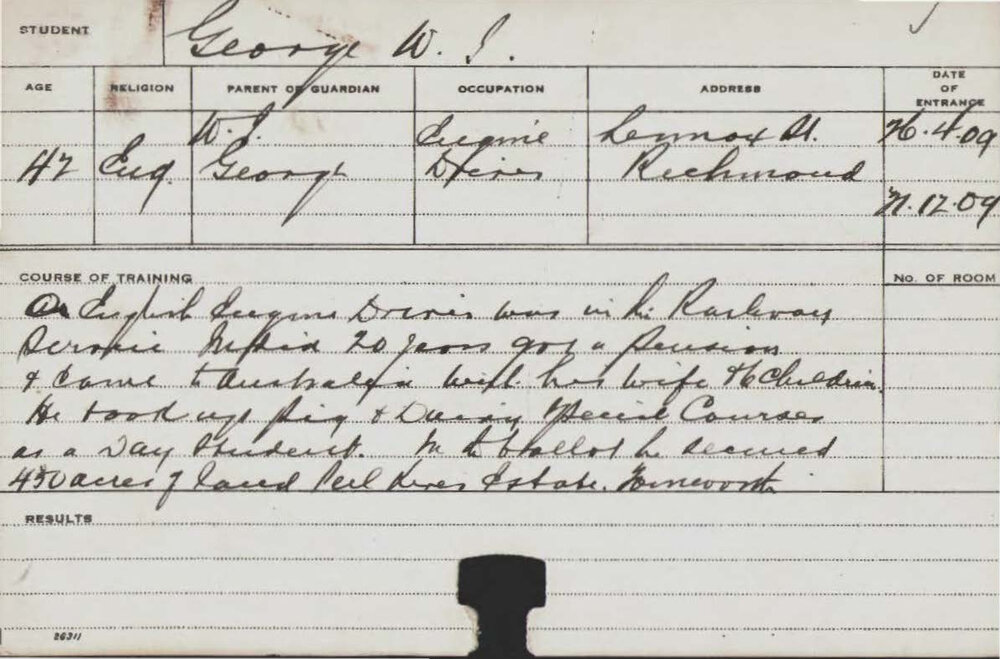 STUDENT George W. J.
AGE RELIGION PARENT OR GUARDIAN OCCUPATION ADDRESS DATE OF ENTRANCE
W. J. Engine Lennox St. 26.4.09
47 Eng. George Driver Richmond
12.09
COURSE OF TRAINING No. OF ROOM
An English Engine Driver was in the Railway
Service 20 years got a Pension
& came to Australia with his wife & 6 Children.
He took up Pig & Dairy Special Courses
as a Day Student. In the ballot he secured
450 acres of Land Estate.
RESULTS
26311